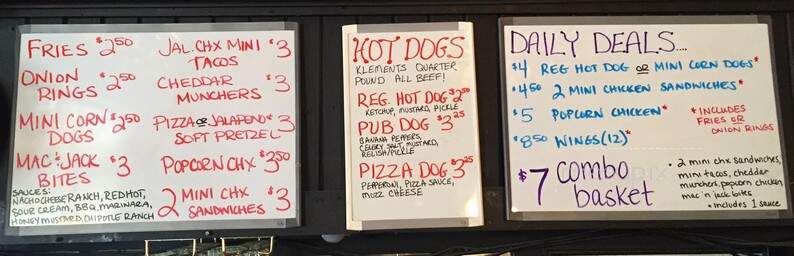 FRIES $2.50
ONION
RINGS $2.50
MINI CORN
DOGS $2.50
MAC 'N' JACK
BITES $3
SAUCES:
NACHO CHEESE, RANCH, RED HOT,
SOUR CREAM, BBQ, MARINARA,
HONEY MUSTARD, CHIPOTLE RANCH
JAL. CHX MINI
TACOS $3
CHEDDAR
MUNCHERS $3
PIZZA OR JALAPENO
SOFT PRETZEL $3
POPCORN CHX $3.50
2 MINI CHX
SANDWICHES $3
HOT DOGS
KLEMENTS QUARTER
POUND ALL BEEF!
REG. HOT DOG $2.50
KETCHUP, MUSTARD, PICKLE
PUB DOG $3.25
BANANA PEPPERS,
CELERY SALT, MUSTARD,
RELISH/PICKLE
PIZZA DOG $3.25
PEPPERONI, PIZZA SAUCE,
MUZZ CHEESE
DAILY DEALS....
$4 REG HOT DOG OR MINI CORN DOGS*
$4.50 2 MINI CHICKEN SANDWICHES*
$5 POPCORN CHICKEN*
$8.50 WINGS (12)*
*INCLUDES
FRIES OR
ONION RINGS
$7 combo
basket
• 2 mini chx sandwiches,
mini tacos, cheddar
munchers, popcorn chicken,
mac 'n jack bites
• includes 1 sauce